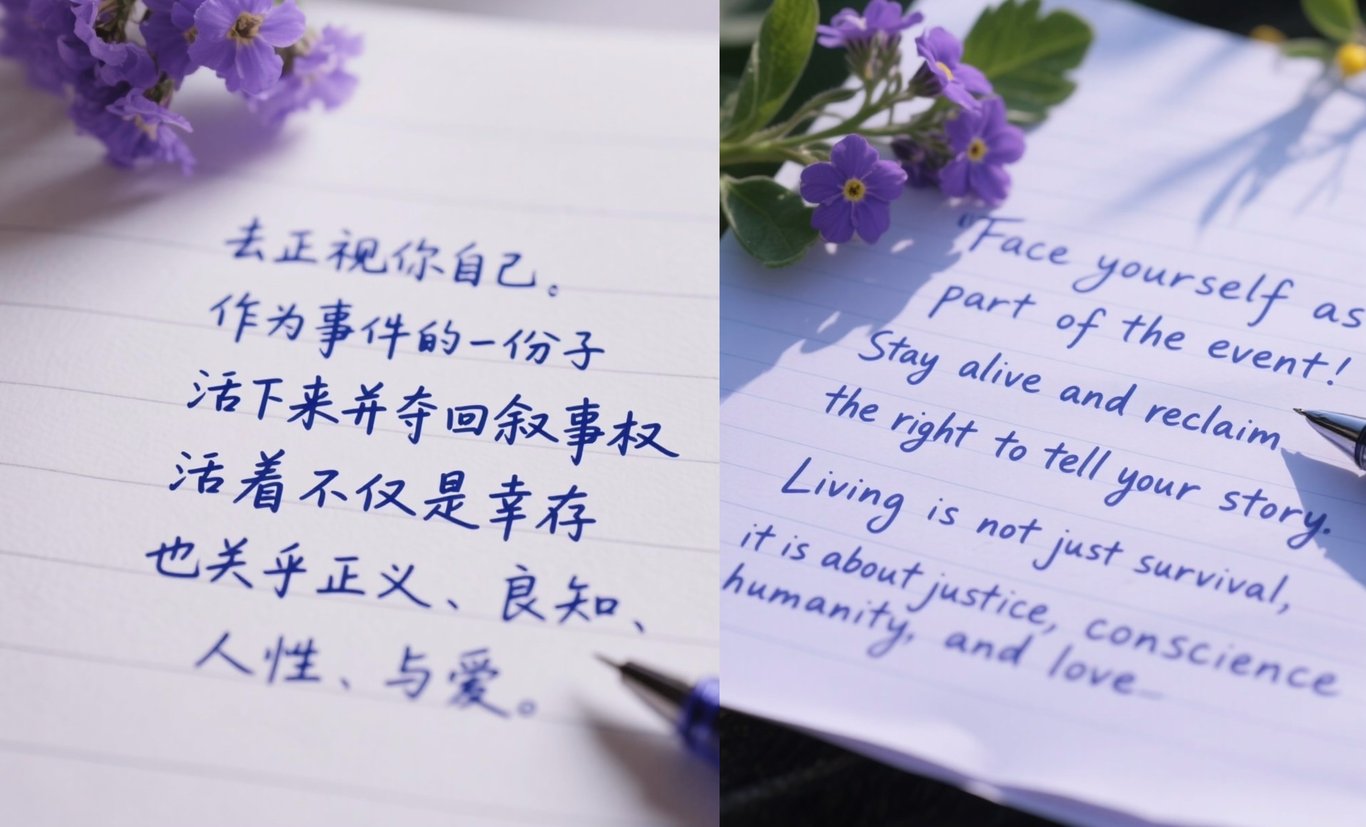 去正视你自己。
作为事件的一份子
活下来并夺回叙事权
活着不仅是幸存
也关乎正义、良知、
人性、与爱。
"Face yourself as
part of the event!
Stay alive and reclaim
the right to tell your story.
Living is not just survival,
it is about justice, conscience
humanity, and love